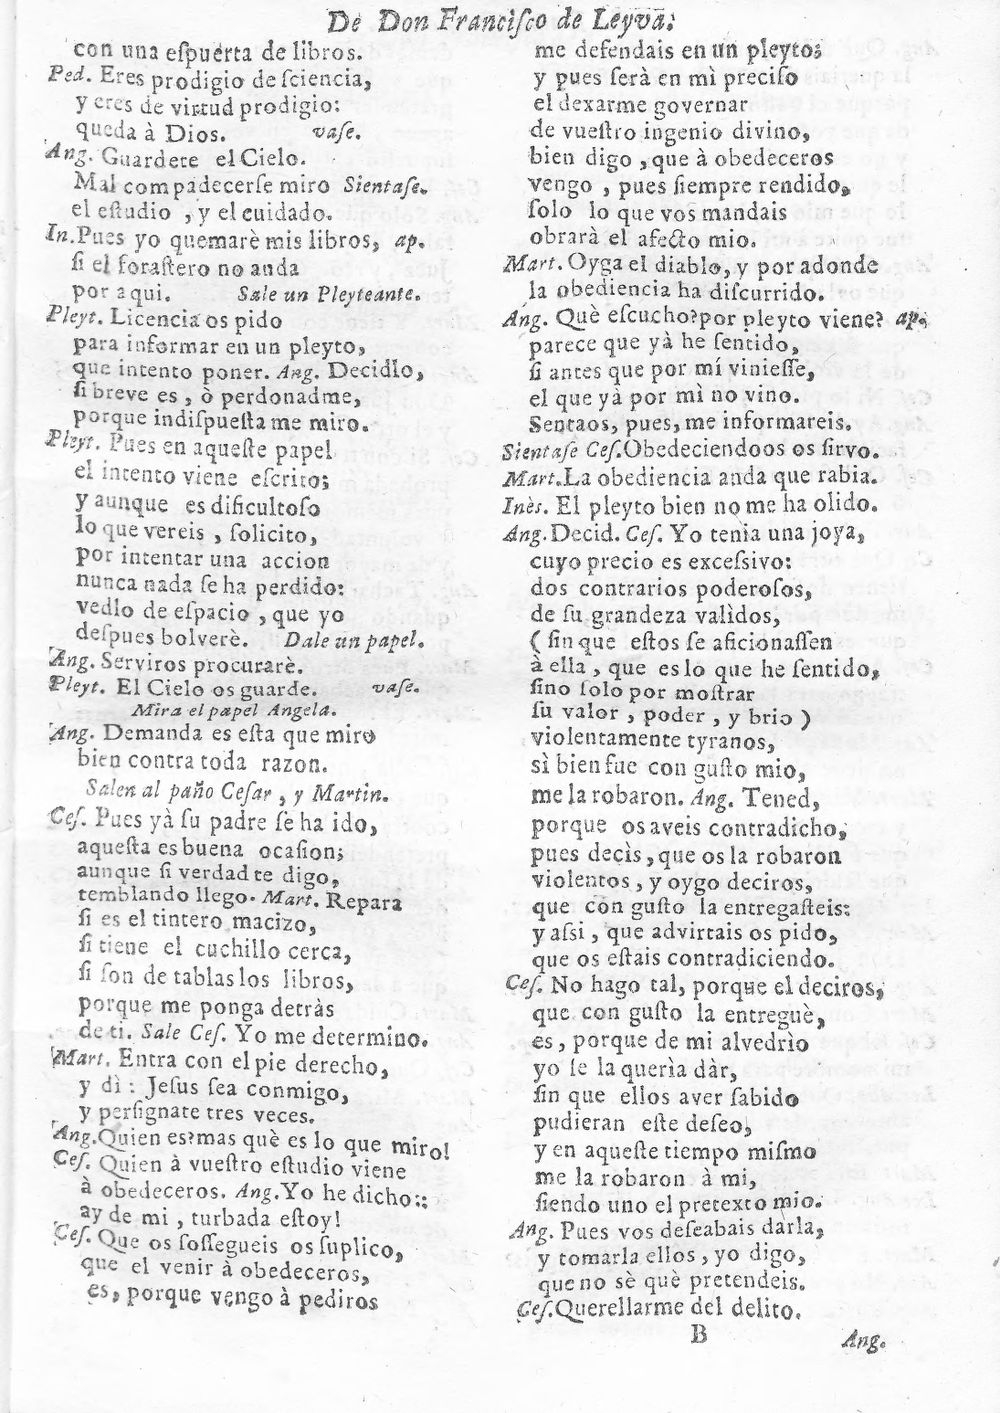 De Don Francisco de Leyva.
con una eſpuerta de libros.
Ped. Eres prodigio de ſciencia,
y eres de virtud prodigio:
queda à Dios. vaſe.
Ang. Guardete el Cielo.
Mal compadecerſe miro Sientaſe.
el eſtudio , y el cuidado.
In. Pues yo quemarè mis libros, ap.
ſi el foraſtero no anda
por aqui. Sale un Pleyteante.
Pleyt. Licencia os pido
para informar en un pleyto,
que intento poner. Ang. Decidlo,
ſi breve es , ò perdonadme,
porque indiſpueſta me miro.
Pleyt. Pues en aqueſte papel
el intento viene eſcrito;
y aunque es dificultoſo
lo que vereis , ſolicito,
por intentar una accion
nunca nada ſe ha perdido:
vedlo de eſpacio , que yo
deſpues bolverè. Dale un papel.
Ang. Serviros procurarè.
Pleyt. El Cielo os guarde. vaſe.
Mira el papel Angela.
Ang. Demanda es eſta que miro
bien contra toda razon.
Salen al paño Ceſar , y Martin.
Ceſ. Pues yà ſu padre ſe ha ido,
aqueſta es buena ocaſion;
aunque ſi verdad te digo,
temblando llego. Mart. Repara
ſi es el tintero macizo,
ſi tiene el cuchillo cerca,
ſi ſon de tablas los libros,
porque me ponga detràs
de ti. Sale Ceſ. Yo me determino.
Mart. Entra con el pie derecho,
y dì : Jeſus ſea conmigo,
y perſignate tres veces.
Ang. Quien es? mas què es lo que miro!
Ceſ. Quien à vueſtro eſtudio viene
à obedeceros. Ang. Yo he dicho::
ay de mi , turbada eſtoy!
Ceſ. Que os ſoſſegueis os ſuplico,
que el venir à obedeceros,
es, porque vengo à pediros
me defendais en un pleyto;
y pues ſerà en mì preciſo
el dexarme governar
de vueſtro ingenio divino,
bien digo , que à obedeceros
vengo , pues ſiempre rendido,
ſolo lo que vos mandais
obrarà el afecto mio.
Mart. Oyga el diablo, y por adonde
la obediencia ha diſcurrido.
Ang. Què eſcucho? por pleyto viene? ap.
parece que yà he ſentido,
ſi antes que por mí vinieſſe,
el que yà por mì no vino.
Sentaos, pues, me informareis.
Sientaſe Ceſ. Obedeciendoos os ſirvo.
Mart. La obediencia anda que rabia.
Inès. El pleyto bien no me ha olido.
Ang. Decid. Ceſ. Yo tenia una joya,
cuyo precio es exceſsivo:
dos contrarios poderoſos,
de ſu grandeza valìdos,
( ſin que eſtos ſe aficionaſſen
à ella , que es lo que he ſentido,
ſino ſolo por moſtrar
ſu valor , poder , y brio )
violentamente tyranos,
sì bien fue con guſto mio,
me la robaron. Ang. Tened,
porque os aveis contradicho,
pues decìs , que os la robaron
violentos , y oygo deciros,
que con guſto la entregaſteis:
y aſsi , que advirtais os pido,
que os eſtais contradiciendo.
Ceſ. No hago tal, porque el deciros,
que con guſto la entreguè,
es, porque de mi alvedrìo
yo ſe la querìa dàr,
ſin que ellos aver ſabido
pudieran eſte deſeo,
y en aqueſte tiempo miſmo
me la robaron à mi,
ſiendo uno el pretexto mio.
Ang. Pues vos deſeabais darla,
y tomarla ellos , yo digo,
que no sè què pretendeis.
Ceſ. Querellarme del delito.
B
Ang.